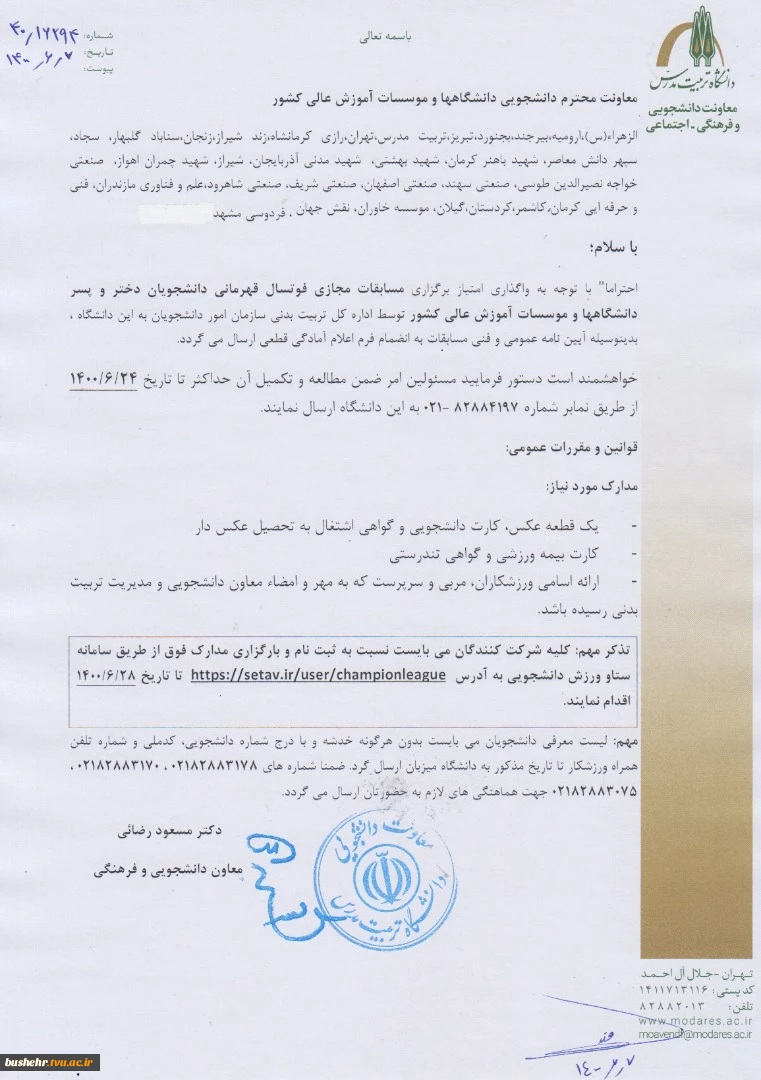 باسمه تعالی
شماره: ۴۰/۱۶۲۹۴
تاریخ: ۱۴۰۰/۶/۷
پیوست:
دانشگاه تربیت مدرس
معاونت دانشجویی
و فرهنگی - اجتماعی
معاونت محترم دانشجویی دانشگاهها و موسسات آموزش عالی کشور
الزهراء(س)،ارومیه،بیرجند،بجنورد،تبریز،تربیت مدرس،تهران،رازی کرمانشاه،زند شیراز،زنجان،سناباد گلبهار، سجاد،
سپهر دانش معاصر، شهید باهنر کرمان، شهید بهشتی، شهید مدنی آذربایجان، شیراز، شهید چمران اهواز، صنعتی
خواجه نصیرالدین طوسی، صنعتی سهند، صنعتی اصفهان، صنعتی شریف، صنعتی شاهرود،علم و فناوری مازندران، فنی
و حرفه ایی کرمان،کاشمر،کردستان،گیلان، موسسه خاوران، نقش جهان ، فردوسی مشهد
با سلام؛
احتراما" با توجه به واگذاری امتیاز برگزاری مسابقات مجازی فوتسال قهرمانی دانشجویان دختر و پسر
دانشگاهها و موسسات آموزش عالی کشور توسط اداره کل تربیت بدنی سازمان امور دانشجویان به این دانشگاه ،
بدینوسیله آیین نامه عمومی و فنی مسابقات به انضمام فرم اعلام آمادگی قطعی ارسال می گردد.
خواهشمند است دستور فرمایید مسئولین امر ضمن مطالعه و تکمیل آن حداکثر تا تاریخ ۱۴۰۰/۶/۲۴
از طریق نمابر شماره ۸۲۸۸۴۱۹۷ -۰۲۱ به این دانشگاه ارسال نمایند.
قوانین و مقررات عمومی:
مدارک مورد نیاز:
- یک قطعه عکس، کارت دانشجویی و گواهی اشتغال به تحصیل عکس دار
- کارت بیمه ورزشی و گواهی تندرستی
- ارائه اسامی ورزشکاران، مربی و سرپرست که به مهر و امضاء معاون دانشجویی و مدیریت تربیت
بدنی رسیده باشد.
تذکر مهم: کلیه شرکت کنندگان می بایست نسبت به ثبت نام و بارگزاری مدارک فوق از طریق سامانه
ستاو ورزش دانشجویی به آدرس https://setav.ir/user/championleague تا تاریخ ۱۴۰۰/۶/۲۸
اقدام نمایند.
مهم: لیست معرفی دانشجویان می بایست بدون هرگونه خدشه و با درج شماره دانشجویی، کدملی و شماره تلفن
همراه ورزشکار تا تاریخ مذکور به دانشگاه میزبان ارسال گرد. ضمنا شماره های ۰۲۱۸۲۸۸۳۱۷۸ ، ۰۲۱۸۲۸۸۳۱۷۰ ،
۰۲۱۸۲۸۸۳۰۷۵ جهت هماهنگی های لازم به حضورتان ارسال می گردد.
دکتر مسعود رضائی
معاون دانشجویی و فرهنگی
معاونت دانشجویی
دانشگاه تربیت مدرس
تهران - جلال آل احمد
کد پستی: ۱۴۱۱۷۱۳۱۱۶
تلفن: ۸۲۸۸۲۰۱۳
www.modares.ac.ir
moavend@modares.ac.ir
۱۴۰۰/۶/۷
bushehr.tvu.ac.ir